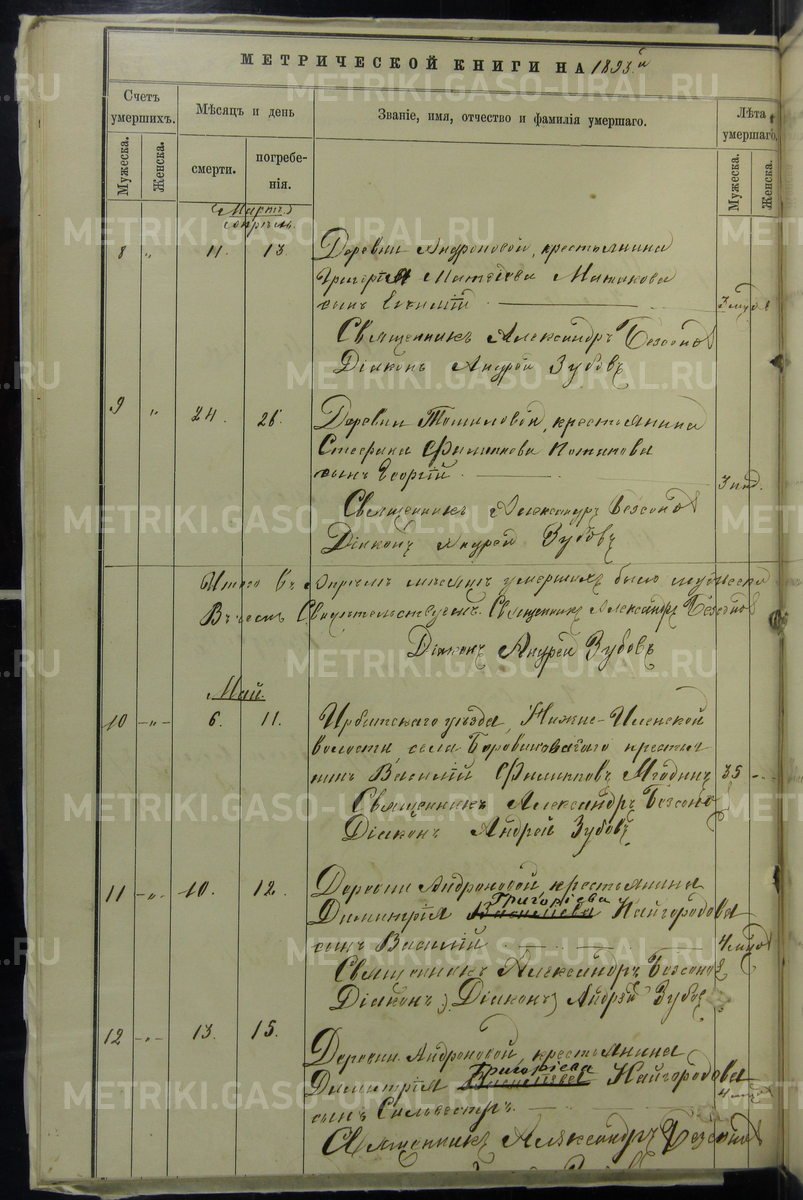 МЕТРИЧЕСКОЙ КНИГИ НА 1893й
Счетъ умершихъ.
Мѣсяцъ и день
Званіе, имя, отчество и фамилія умершаго.
Лѣта умершаго.
Мужеска.
Женска.
смерти.
погребенія.
Мужеска.
Женска.
(Мартъ)
Апрѣль.
8 " 11. 13. Деревни Андроновой, крестьянина
Григорія Матвѣева
сынъ Евѳимій
Священникъ Александръ Безсоновъ
Діаконъ Андрей Зубовъ
9 " 24. 26. Деревни Томиловой, крестьянина
Стефана Филиппова Потапова
сынъ Георгій 3 нед.
Священникъ Александръ Безсоновъ
Діаконъ Андрей Зубовъ
Итого въ Апрѣлѣ мѣсяцѣ умершихъ было мужеска
Въ чемъ Свидѣтельствуемъ. Священникъ Александръ Безсоновъ
Діаконъ Андрей Зубовъ
Май.
10 -"- 6. 11. Ирбитскаго уѣзда, Нижне-Иленской
волости, села крестья
нинъ Василій Филипповъ Ягодинъ 35 -"-
Священникъ Александръ Безсоновъ
Діаконъ Андрей Зубовъ
11 -"- 10. 12. Деревни Андроновой, крестьянина
Григоріева
Димитрія Василіева Кайгородова
сынъ Василій
Священникъ Александръ Безсоновъ
Діаконъ Діаконъ Андрей Зубовъ
12 -"- 13. 15. Деревни Андроновой, крестьянина
Григоріева
Димитрія Василіева Кайгородова
сынъ Сильвестръ.
Священникъ Александръ Безсоновъ
METRIKI.GASO-URAL.RU